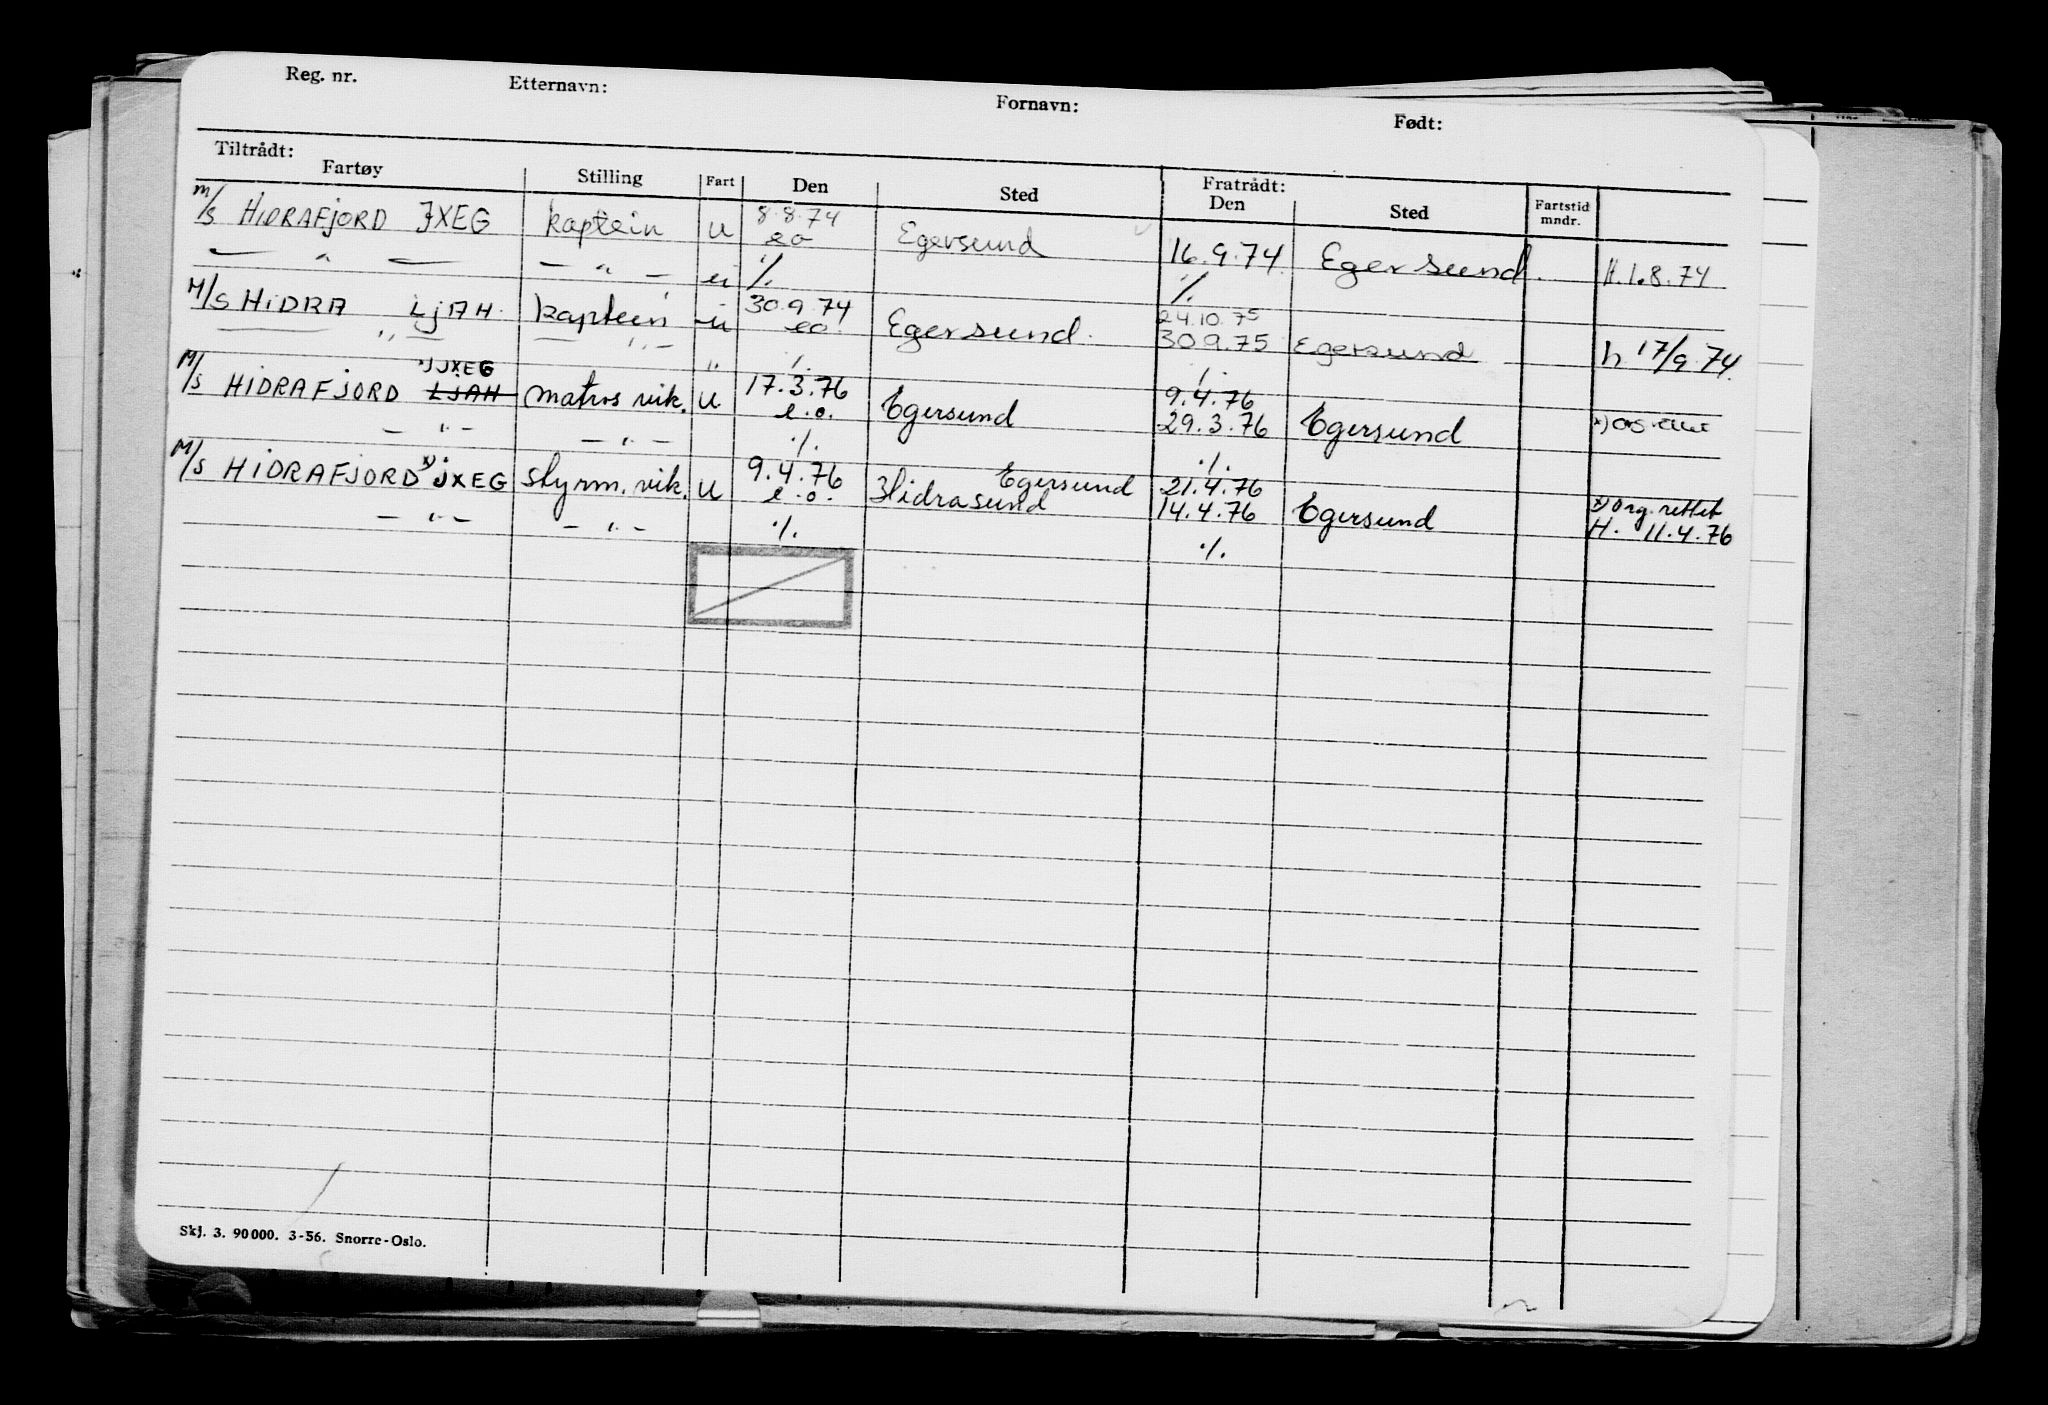 Reg. nr. Etternavn: Fornavn: Født:
Tiltrådt: Fratrådt:
Fartøy Stilling Fart Den Sted Den Sted Fartstid mndr.
M/S HIDRAFJORD JXEG kaptein u 8.8.74 eo Egersund 16.9.74 Egersund. H.1.8.74
— " — — " — u ·/. ·/.
M/S HIDRA LJAH kaptein u 30.9.74 eo Egersund. 24.10.75 30.9.75 Egersund h 17/9.74.
— " — — " — " ·/. ·/.
M/S HIDRAFJORD x) JXEG LJAH matros vik. u 17.3.76 e.o. Egersund 9.4.76 29.3.76 Egersund x)
— " — — " — ·/. ·/.
M/S HIDRAFJORD x) JXEG styrm. vik. u 9.4.76 e.o. Hidrasund Egersund 21.4.76 14.4.76 Egersund x) org. rettet H. 11.4.76
— " — — " — ·/. ·/.
Skj. 3. 90000. 3-56. Snorre-Oslo.